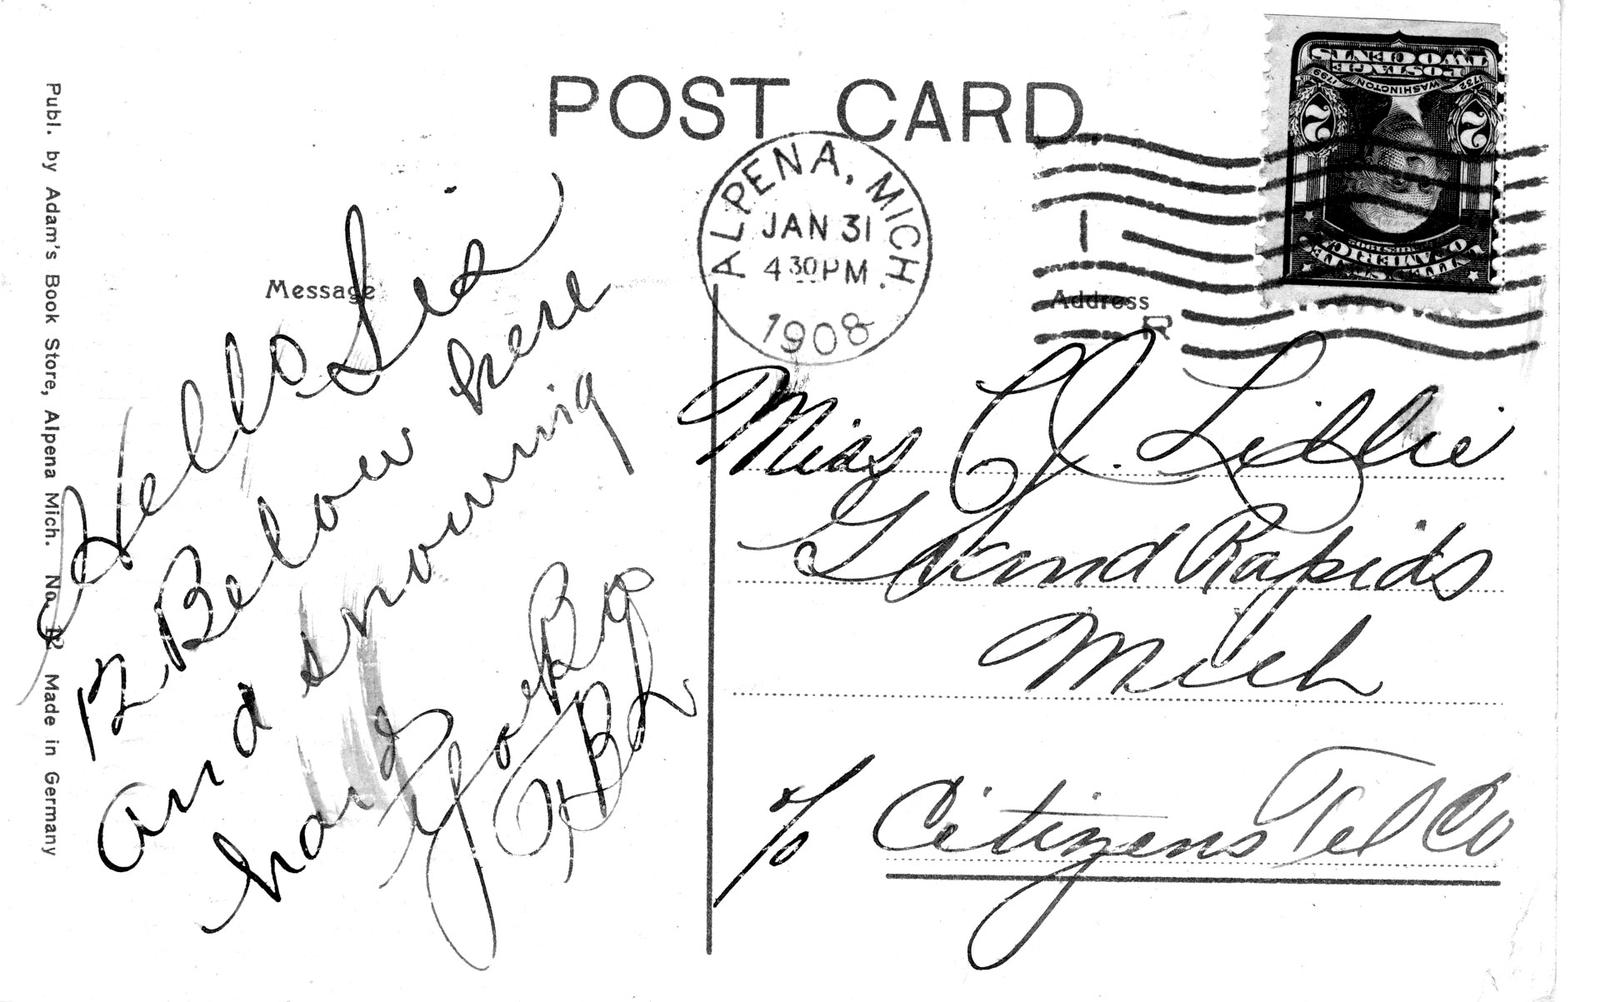 POST CARD
Publ. by Adam's Book Store, Alpena Mich. No. 12 Made in Germany
Message
Hello Sis
12 Below here
and snowing
hard
Your Bro
ALPENA, MICH.
JAN 31
4 30 PM
1908
1
Address
POSTAGE
TWO CENTS
1732 WASHINGTON 1799
2 2
UNITED STATES
OF AMERICA
Miss C J. Liddie
Grand Rapids
Mich
c/o Citizens Tel Co